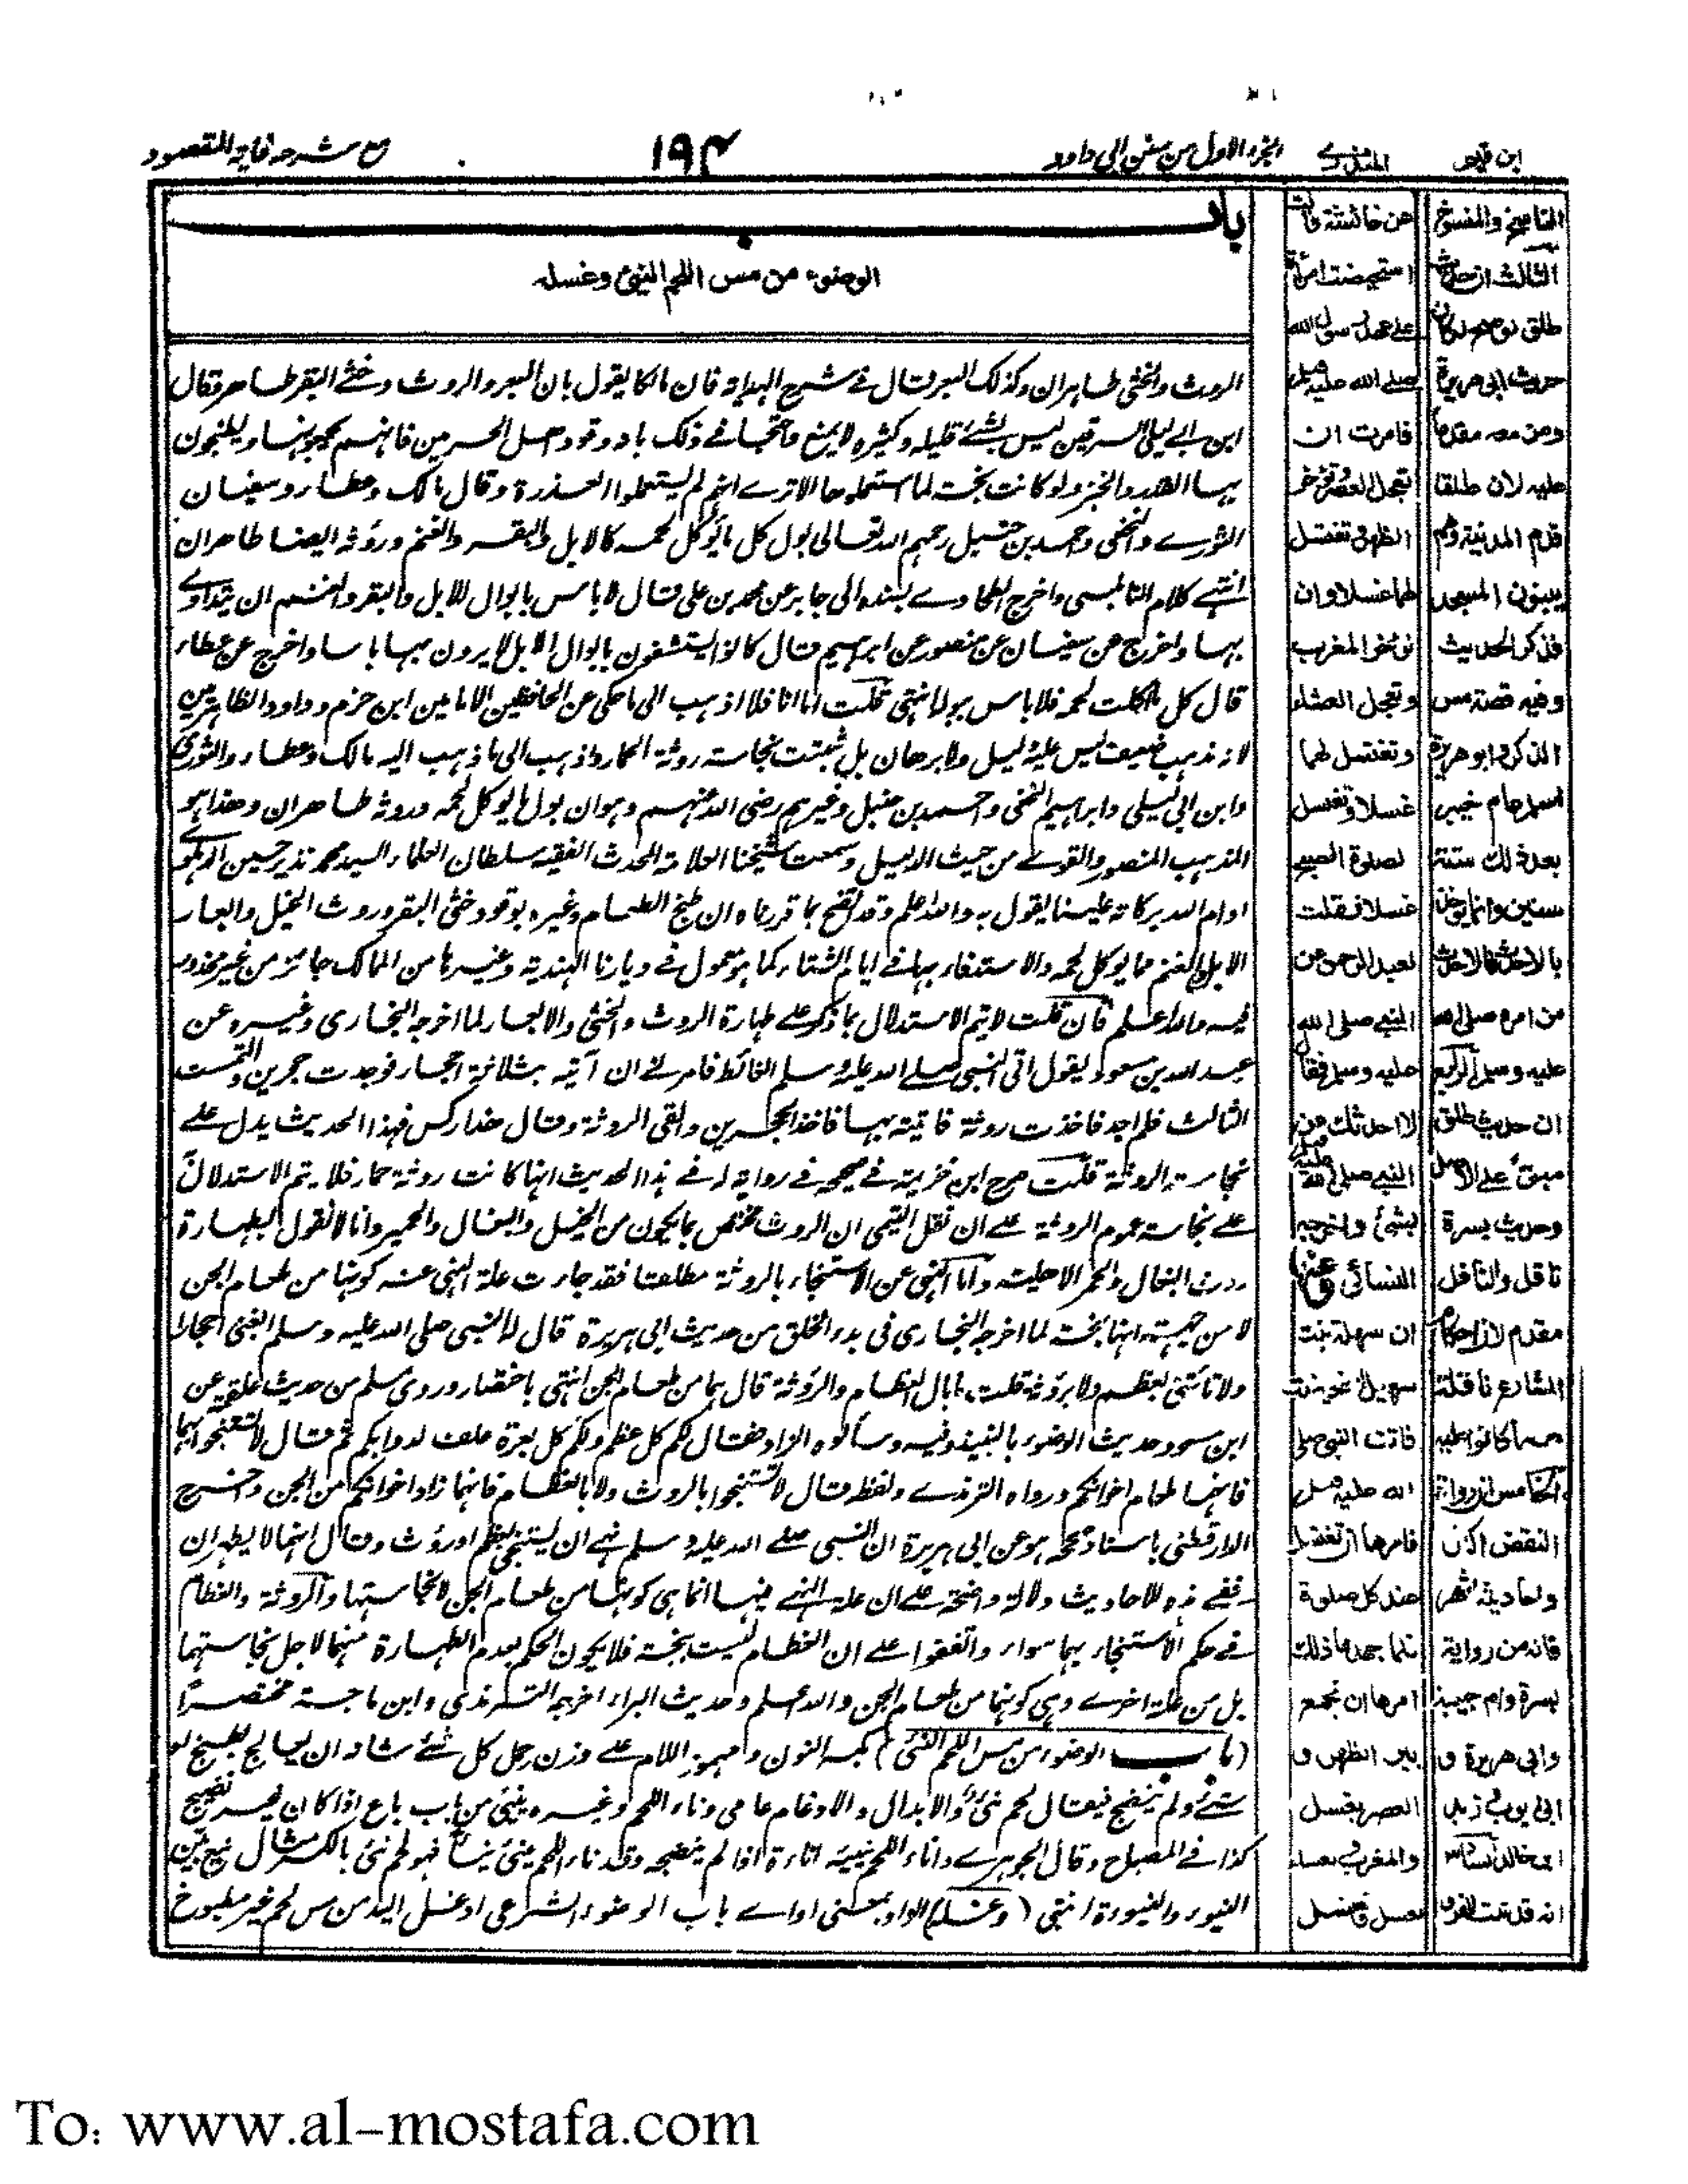 ابن قيم
المنذري
الجزء الاول من سنن ابى داود
١٩٤
مع شرحه غاية المقصود
باب
الوضوء من مس اللحم النيئ وغسله
الروث والخثى طاهران وكذلك البعر قال فى شرح الهداية فان مالكا يقول بان البعر والروث وخثى البقر طاهر وقال
ابن ابى ليلى السرقين ليس بشئ قليله وكثيره لا يمنع واحتجا فى ذلك بانه وقود اهل الحرمين فانهم يجمعونها ويطبخون
بها القدر والخبز ولو كانت نجسة لما استعملوها الا ترى انهم لم يستعملوا العذرة وقال مالك وعطاء وسفيان
الثورى والنخعى واحمد بن حنبل رحمهم الله تعالى بول كل ما يؤكل لحمه كالابل والبقر والغنم وروثه ايضا طاهران
انتهى كلام النابلسى واخرج الطحاوى بسنده الى جابر عن محمد بن على قال لا باس بابوال الابل والبقر والغنم ان يتداوى
بها واخرج عن سفيان عن منصور عن ابراهيم قال كانوا يستشفون بابوال الابل لا يرون بها باسا واخرج عن عطاء
قال كل ما اكلت لحمه فلا باس ببوله انتهى قلت اما انا فلا اذهب الى ما حكى عن الحافظين الامامين ابن حزم وداود الظاهريين
لانه مذهب ضعيف ليس عليه دليل ولا برهان بل ثبتت نجاسة روثة الحمار واذهب الى ما ذهب اليه مالك وعطاء والثورى
وابن ابى ليلى وابراهيم النخعى واحمد بن حنبل وغيرهم رضى الله عنهم وهو ان بول ما يؤكل لحمه وروثه طاهران وهذا هو
المذهب المنصور والقوى من حيث الدليل وسمعت شيخنا العلامة المحدث الفقيه سلطان العلماء السيد محمد نذير حسين الدهلوى
ادام الله بركاته علينا يقول به والله اعلم وقد تضح بما قررناه ان طبخ الطعام وغيره بوقود خثى البقر وروث الخيل وابعار
الابل والغنم مما يوكل لحمه والاستدفاء بها فى ايام الشتاء كما هو معمول فى ديارنا الهندية وغيرها من الممالك جائز من غير محذور
فيه والله اعلم فان قلت لا يتم الاستدلال بما ذكر على طهارة الروث والخثى والابعار لما اخرجه البخارى وغيره عن
عبد الله بن مسعود يقول اتى النبى صلى الله عليه وسلم الغائط فامرنى ان آتيه بثلاثة احجار فوجدت حجرين والتمست
الثالث فلم اجد فاخذت روثة فاتيته بها فاخذ الحجرين والقى الروثة وقال هذا ركس فهذا الحديث يدل على
نجاسة الروثة قلت صرح ابن خزيمة فى صحيحه فى رواية له فى هذا الحديث انها كانت روثة حمار فلا يتم الاستدلال
على نجاسة عموم الروثة على ان نقل التيمى ان الروث مختص بما يكون من الخيل والبغال والحمير وانا لا نقول بطهارة
روث البغال والحمر الاهلية واما النهى عن الاستنجاء بالروثة مطلقا فقد جاءت علة النهى عنه كونها من طعام الجن
لا من جهة انها نجسة لما اخرجه البخارى فى بدء الخلق من حديث ابى هريرة قال له النبى صلى الله عليه وسلم ابغنى احجارا
ولا تاتنى بعظم ولا بروثة قلت ما بال العظام والروثة قال هما من طعام الجن انتهى باختصار وروى مسلم من حديث علقمة عن
ابن مسعود حديث الوضوء بالنبيذ وفيه وسألوه الزاد فقال لكم كل عظم ولكم كل بعرة علف لدوابكم ثم قال لا تستنجوا بهما
فانهما طعام اخوانكم ورواه الترمذى ولفظه قال لا تستنجوا بالروث ولا بالعظام فانهما زاد اخوانكم من الجن واخرج
الدارقطنى باسناد صححه هو عن ابى هريرة ان النبى صلى الله عليه وسلم نهى ان يستنجى بعظم او روث وقال انهما لا يطهران
ففى هذه الاحاديث دلالة واضحة على ان علة النهى فيها انما هى كونها من طعام الجن لا نجاستها والروثة والعظام
فى حكم الاستنجاء بهما سواء واتفقوا على ان العظام ليست بنجسة فلا يكون الحكم بعدم الطهارة منهما لاجل نجاستهما
بل من علة اخرى وهى كونها من طعام الجن والله اعلم وحديث البراء اخرجه الترمذى وابن ماجة مختصراً
(باب الوضوء من مس اللحم النيئ) بكسر النون ومهموز اللام على وزن حمل كل شئ شانه ان يعالج بطبخ او
شئ ولم ينضج فيقال لحم نيئ والابدال والادغام عامى وناء اللحم وغيره ينيئ من باب باع اذا كان غير نضيج
كذا فى المصباح وقال الجوهرى واناء اللحم ينيئه اناءة اذا لم ينضجه وقد ناء اللحم ينيئ نيئا فهو لحم نيئ بالكسر مثال نيع بين
النيوء والنيوءة انتهى (وغسله) الواو بمعنى او اى باب الوضوء الشرعى او غسل اليد من مس لحم غير مطبوخ
عن عائشة قالت
استحيضت امرأة
على عهد رسول الله
صلى الله عليه وسلم
فامرت ان
تعجل العصر وتؤخر
الظهر وتغتسل
لهما غسلا وان
تؤخر المغرب
وتعجل العشاء
وتغتسل لهما
غسلا وتغتسل
لصلوة الصبح
غسلا فقلت
لعبد الرحمن عن
النبى صلى الله
عليه وسلم فقال
لا احدثك عن
النبى صلى الله عليه وسلم
بشئ واخرجه
النسائى وعنها
ان سهلة بنت
سهيل استحيضت
فاتت النبى صلى
الله عليه وسلم
فامرها ان تغتسل
عند كل صلوة
فلما جهدها ذلك
امرها ان تجمع
بين الظهر و
العصر بغسل
والمغرب والعشاء
بغسل وتغتسل
الناسخ والمنسوخ
الثالث ان حديث
طلق لو صح لكان
حديث ابى هريرة
ومن معه مقدما
عليه لان طلقا
قدم المدينة وهم
يبنون المسجد
فذكر الحديث
وفيه قصة مس
الذكر وابو هريرة
اسلم عام خيبر
بعد ذلك بستة
سنين وانما يؤخذ
بالاحدث فالاحدث
من امره صلى الله
عليه وسلم الرابع
ان حديث طلق
مبق على الاصل
وحديث بسرة
ناقل والناقل
مقدم لان احكام
الشارع ناقلة
عما كانوا عليه
الخامس ان رواة
النقض اكثر
واحاديثه اشهر
فانه من رواية
بسرة وام حبيبة
وابى هريرة و
ابى ايوب وزيد
ابن خالد السادس
انه قد ثبت الفرق
To: www.al-mostafa.com